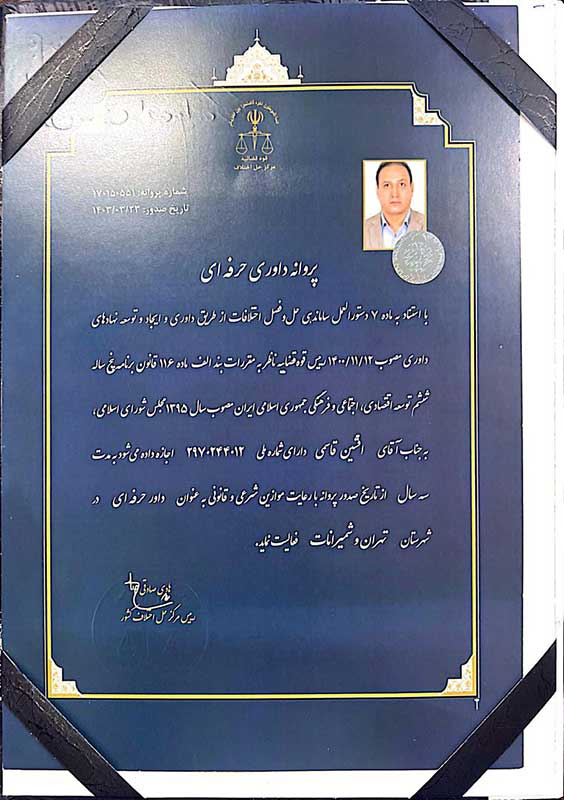 قوه قضائیه
مرکز حل اختلاف
شماره پروانه: ۱۷۰۱۵۰۵۵۱
تاریخ صدور: ۱۴۰۳/۰۳/۲۳
پروانه داوری حرفه ای
با استناد به ماده ۷ دستورالعمل ساماندهی حل و فصل اختلافات از طریق داوری و ایجاد و توسعه نهادهای
داوری مصوب ۱۴۰۰/۱۱/۱۲ رییس قوه قضاییه ناظر به مقررات بند الف ماده ۱۱۶ قانون برنامه پنج ساله
ششم توسعه اقتصادی، اجتماعی و فرهنگی جمهوری اسلامی ایران مصوب سال ۱۳۹۵ مجلس شورای اسلامی،
به جناب آقای افشین قاسمی دارای شماره ملی ۲۹۷۰۲۴۴۰۱۲ اجازه داده می شود به مدت
سه سال از تاریخ صدور پروانه با رعایت موازین شرعی و قانونی به عنوان داور حرفه ای در
شهرستان تهران و شمیرانات فعالیت نماید.
هادی صادقی
رییس مرکز حل اختلاف کشور